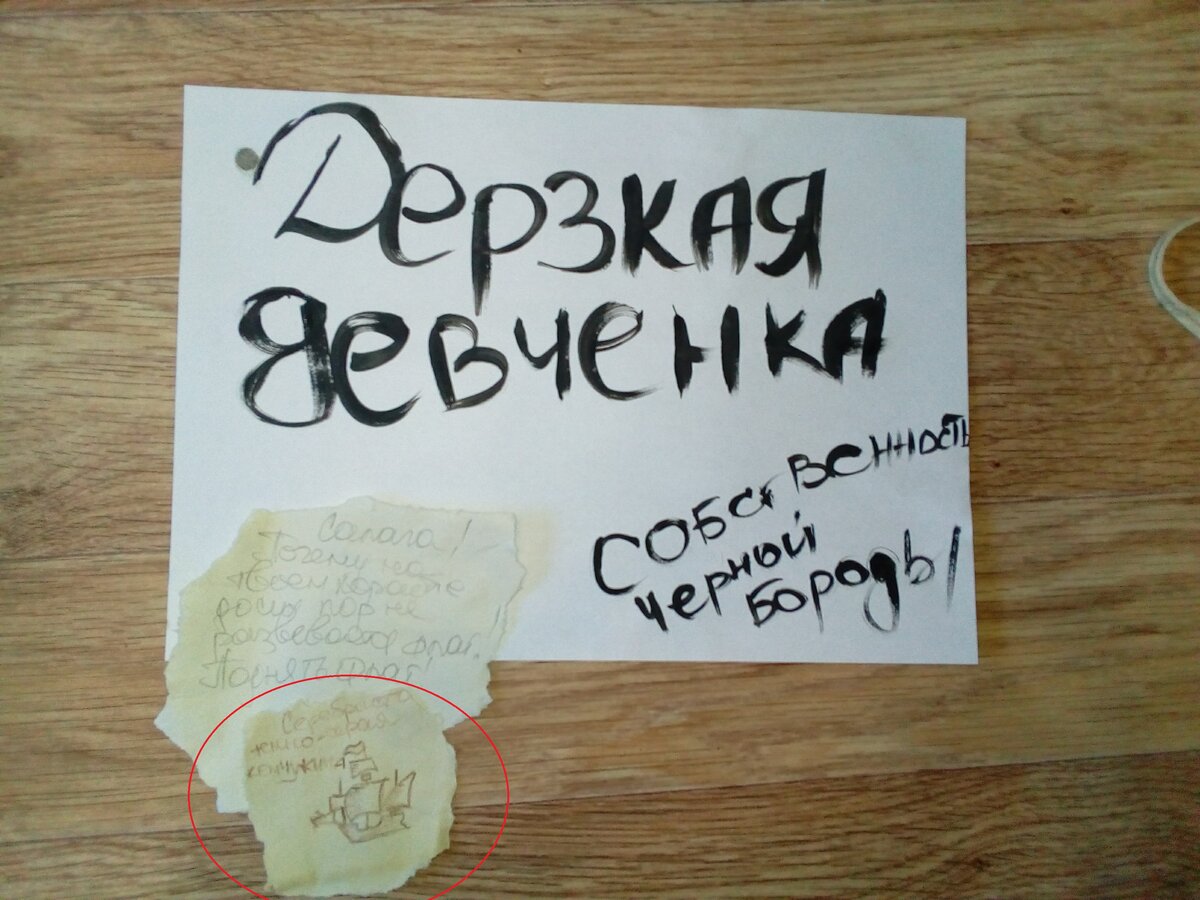 Дерзкая
девченка
Собственность
черный
бороды
Салага!
Почему на
твоем корабле
до сих пор не
развевается флаг!
Поднять флаг!
жемчужина